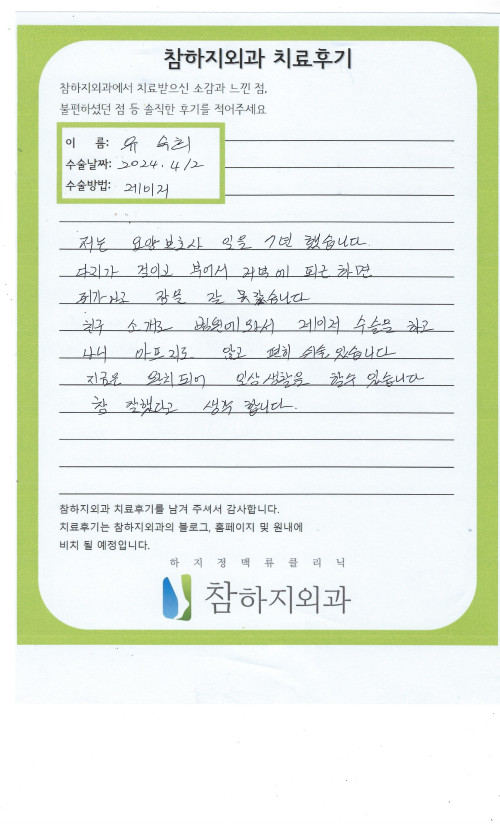 참하지외과 치료후기
참하지외과에서 치료받으신 소감과 느낀 점,
불편하셨던 점 등 솔직한 후기를 적어주세요
이 름: 유 숙희
수술날짜: 2024. 4/2
수술방법: 레이저
저는 요양보호사 일을 7년 했습니다.
다리가 적이고 부어서 저녁에 퇴근하면
쥐가나고 잠을 잘 못잤습니다
친구 소개로 병원에와서 레이저 수술을 하고
나니 아프지도 않고 편히 쉬술있습니다
지금은 완치되어 일상생활을 할수 있습니다
참 잘했다고 생각 합니다.
참하지외과 치료후기를 남겨 주셔서 감사합니다.
치료후기는 참하지외과의 블로그, 홈페이지 및 원내에
비치 될 예정입니다.
하지정맥류클리닉
참하지외과